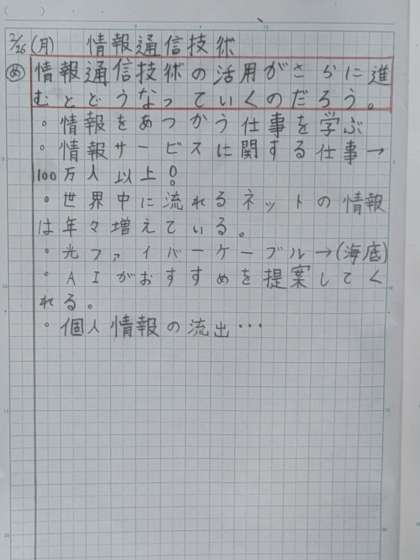 2/26(月) 情報通信技術
め 情報通信技術の活用がさらに進
むとどうなっていくのだろう。
・情報をあつかう仕事を学ぶ
・情報サービスに関する仕事→
100万人以上!
・世界中に流れるネットの情報
は年々増えている。
・光ファイバーケーブル→(海底)
・AIがおすすめを提案してく
れる。
・個人情報の流出…